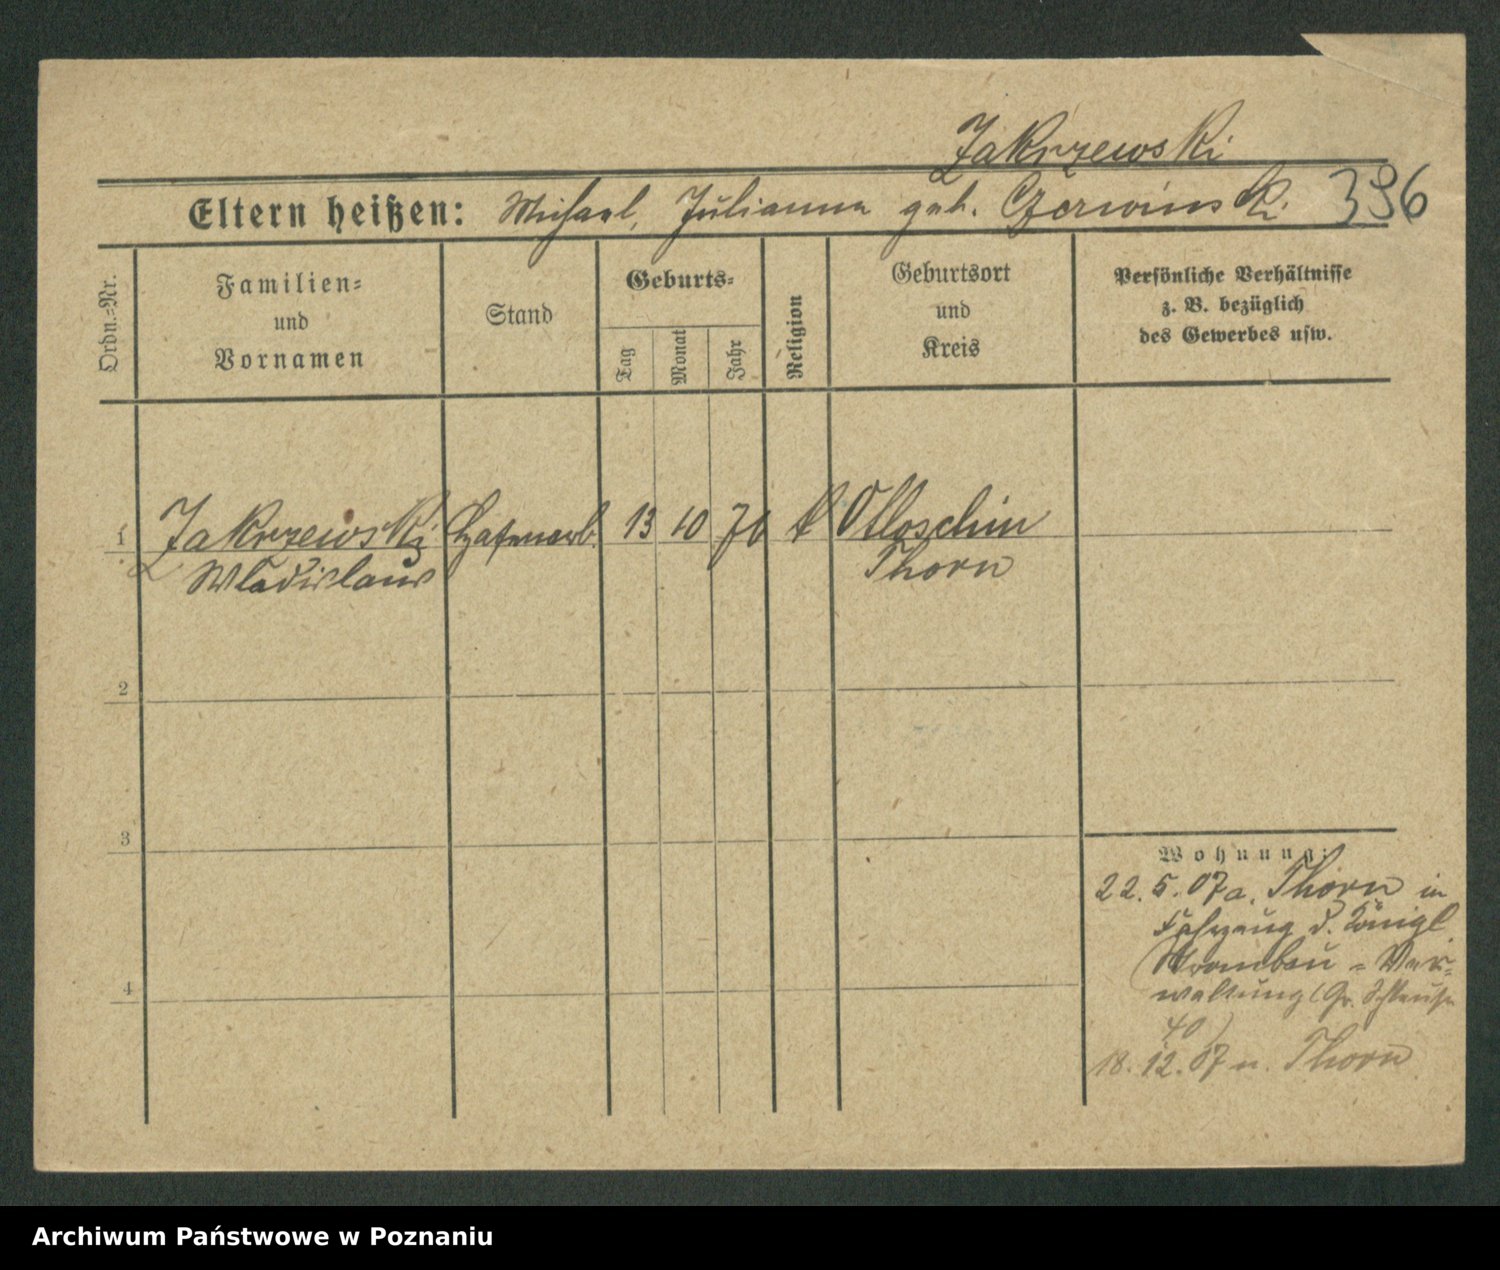 Zakrzewski
Eltern heißen: Michael, Julianna geb. Czerwinski 396
Ordn.-Nr.
Familien-
und
Vornamen
Stand
Geburts-
Tag
Monat
Jahr
Religion
Geburtsort
und
Kreis
Persönliche Verhältnisse
z. B. bezüglich
des Gewerbes usw.
1 Zakrzewski 13 10 76 k Ottloschin
Wladislaus Thorn
2
3
4
Wohnung:
22. 5. 07 a. Thorn in
Fahrzeug d. Königl
Strombau-Ver-
waltung (Gr. Schleuse
40)
18. 12. 07 n. Thorn
Archiwum Państwowe w Poznaniu